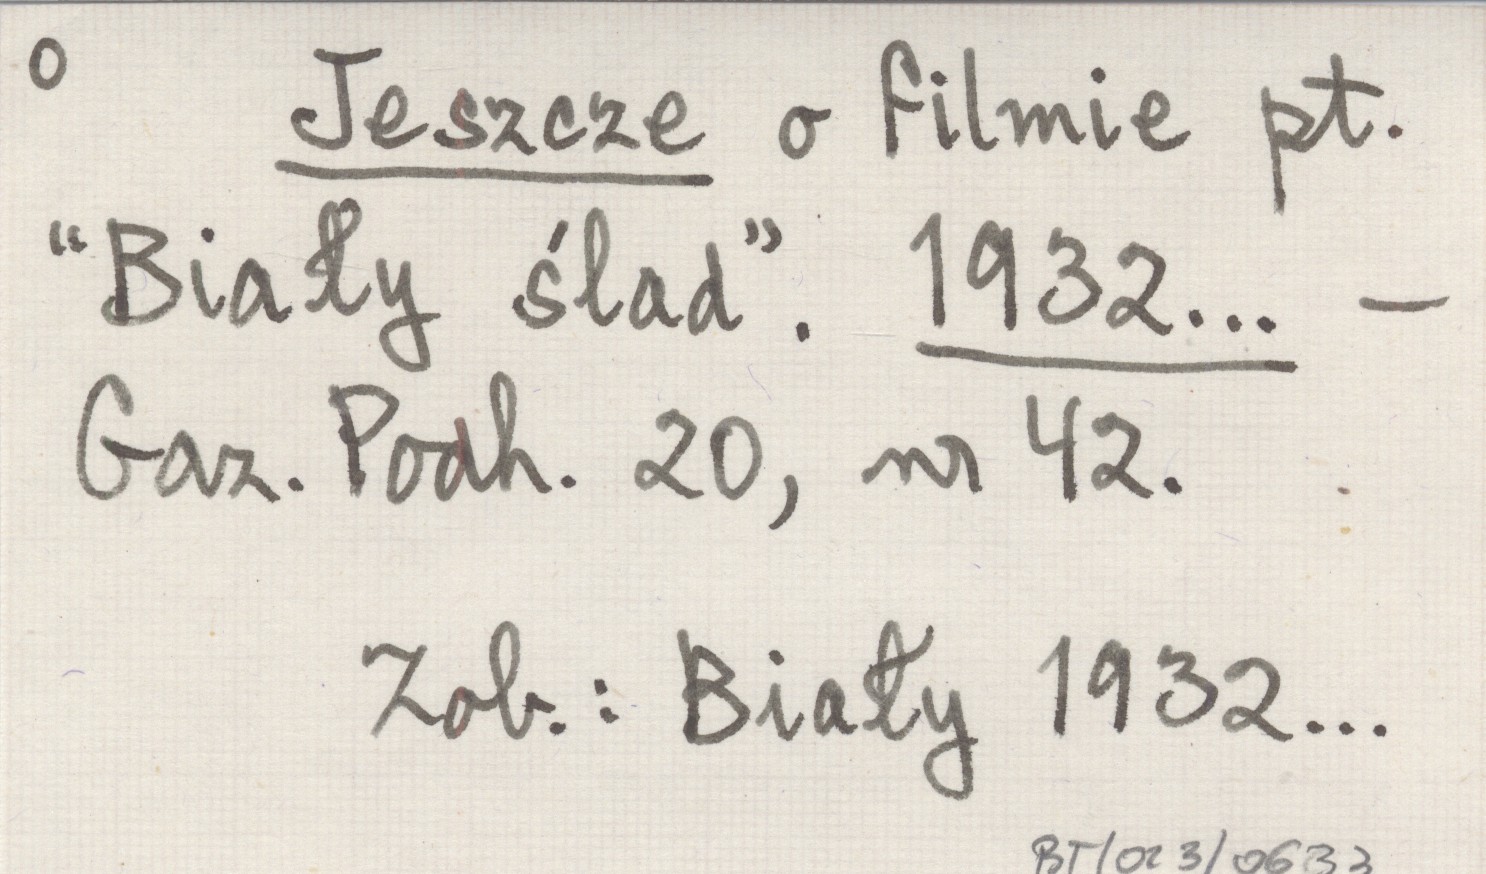 o Jeszcze o filmie pt.
“Biały ślad”. 1932... –
Gaz. Podh. 20, nr 42.
Zob.: Biały 1932...